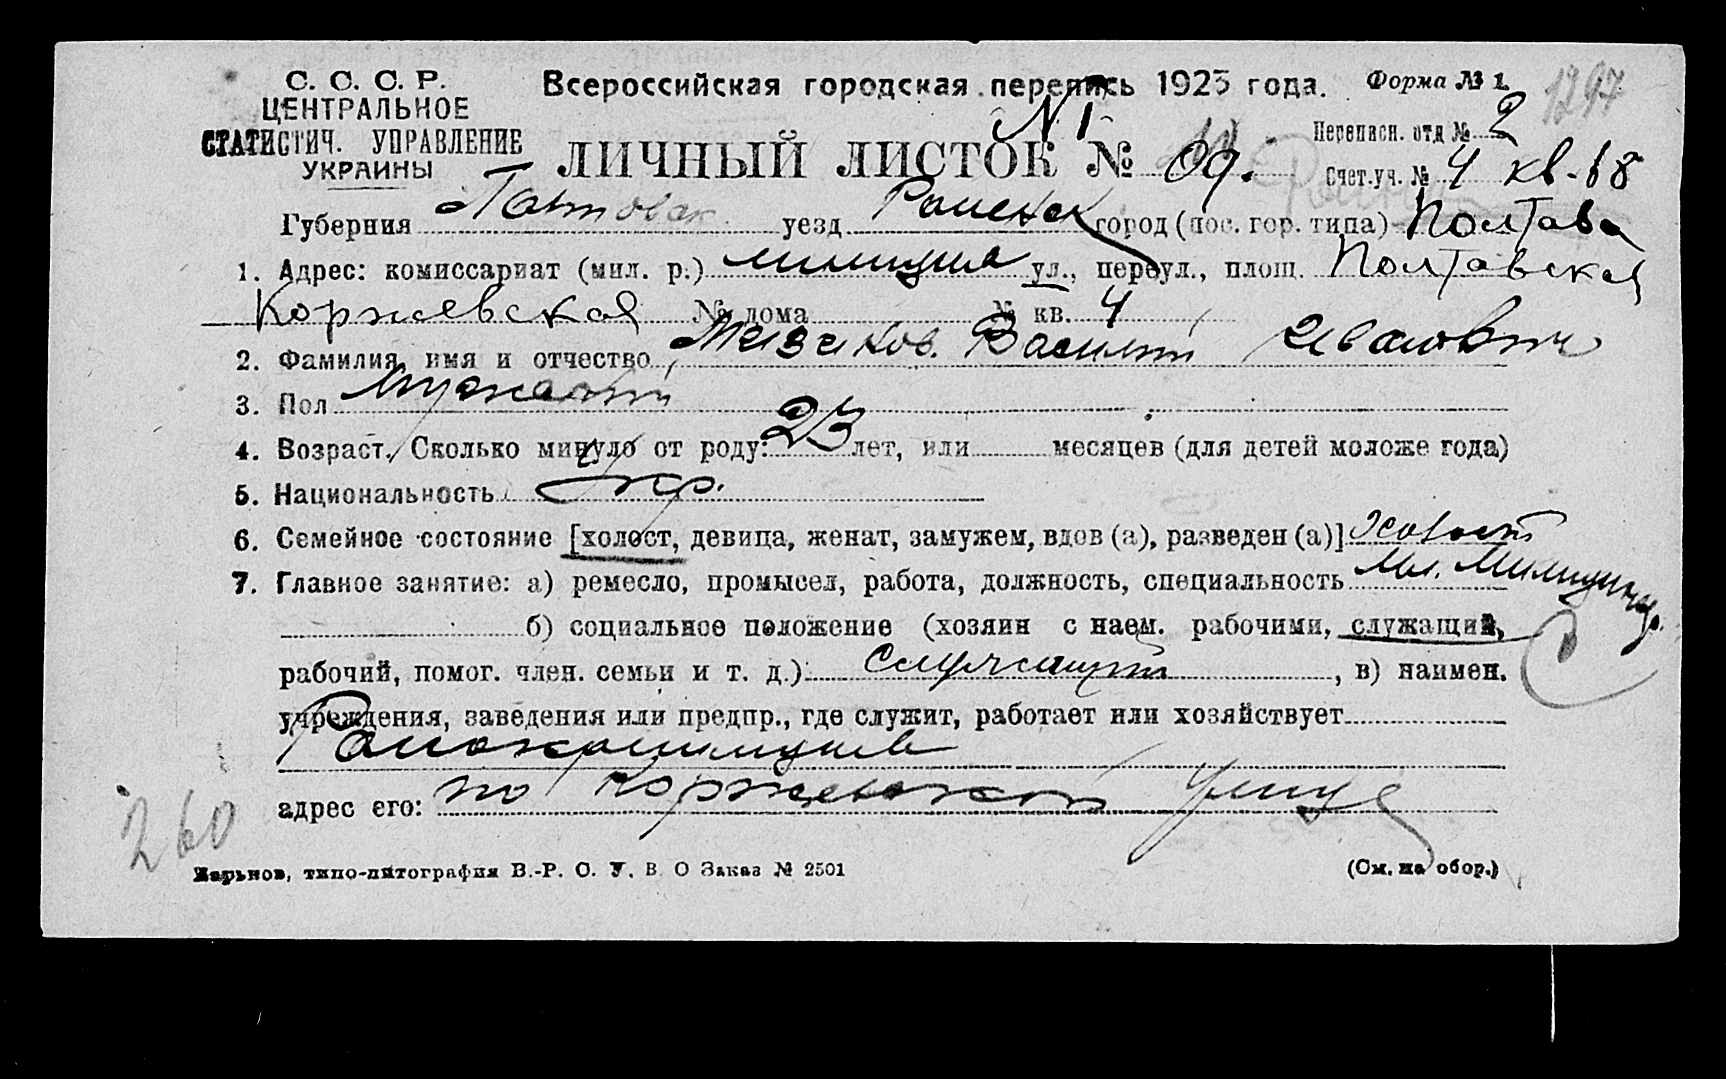 С. С. С. Р.
ЦЕНТРАЛЬНОЕ
СТАТИСТИЧ. УПРАВЛЕНИЕ
УКРАИНЫ
Всероссийская городская перепись 1923 года.
Форма № 1.
1297
N 1
ЛИЧНЫЙ ЛИСТОК № 09.
Переписн. отд № 2
Счет.уч. № 4 кв-68
Губерния Полтовск уезд Роменск город (пос. гор. типа) Полтава
1. Адрес: комиссариат (мил. р.) милиция ул., переул., площ. Полтавская
Коржевская № дома № кв. 4
2. Фамилия, имя и отчество Василий Иванович
3. Пол Мужской
4. Возраст. Сколько минуло от роду: 23 лет, или месяцев (для детей моложе года)
5. Национальность укр.
6. Семейное состояние [холост, девица, женат, замужем, вдов (а), разведен (а)] Холост
7. Главное занятие: а) ремесло, промысел, работа, должность, специальность Мл. Милиционер.
б) социальное положение (хозяин с наем. рабочими, служащий,
рабочий, помог. член. семьи и т. д.) служащий, в) наимен.
учреждения, заведения или предпр., где служит, работает или хозяйствует
адрес его: по Коржевской улице
260
Харьков, типо-литография В.-Р. С. У. В О Заказ № 2501
(См. на обор.)